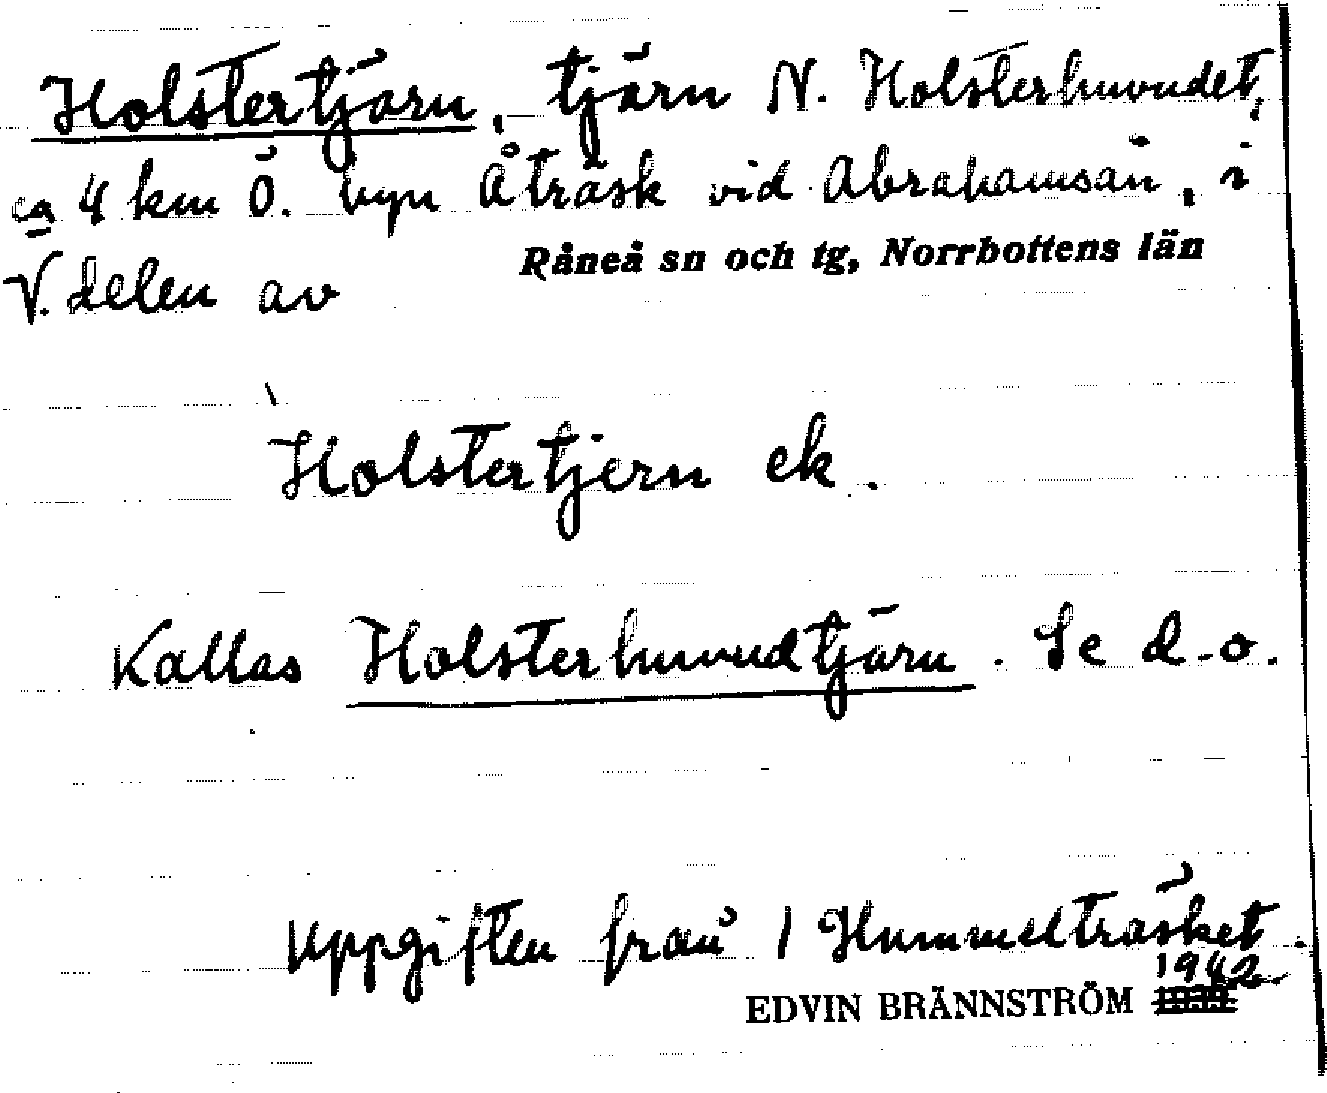 Holstertjärn, tjärn N. Holsterhuvudet,
ca 4 km Ö. byn Åträsk vid Abrahamsån, i
V. delen av Råneå sn och tg, Norrbottens län
Holstertjern ek.
Kallas Holsterhuvudtjärn. Se d.o.
Uppgiften från 1 Hummelträsket.
1942
EDVIN BRÄNNSTRÖM